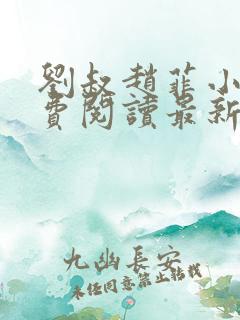 劉叔趙菲小
費閱讀最新
九幽長安
未经同意禁止转载